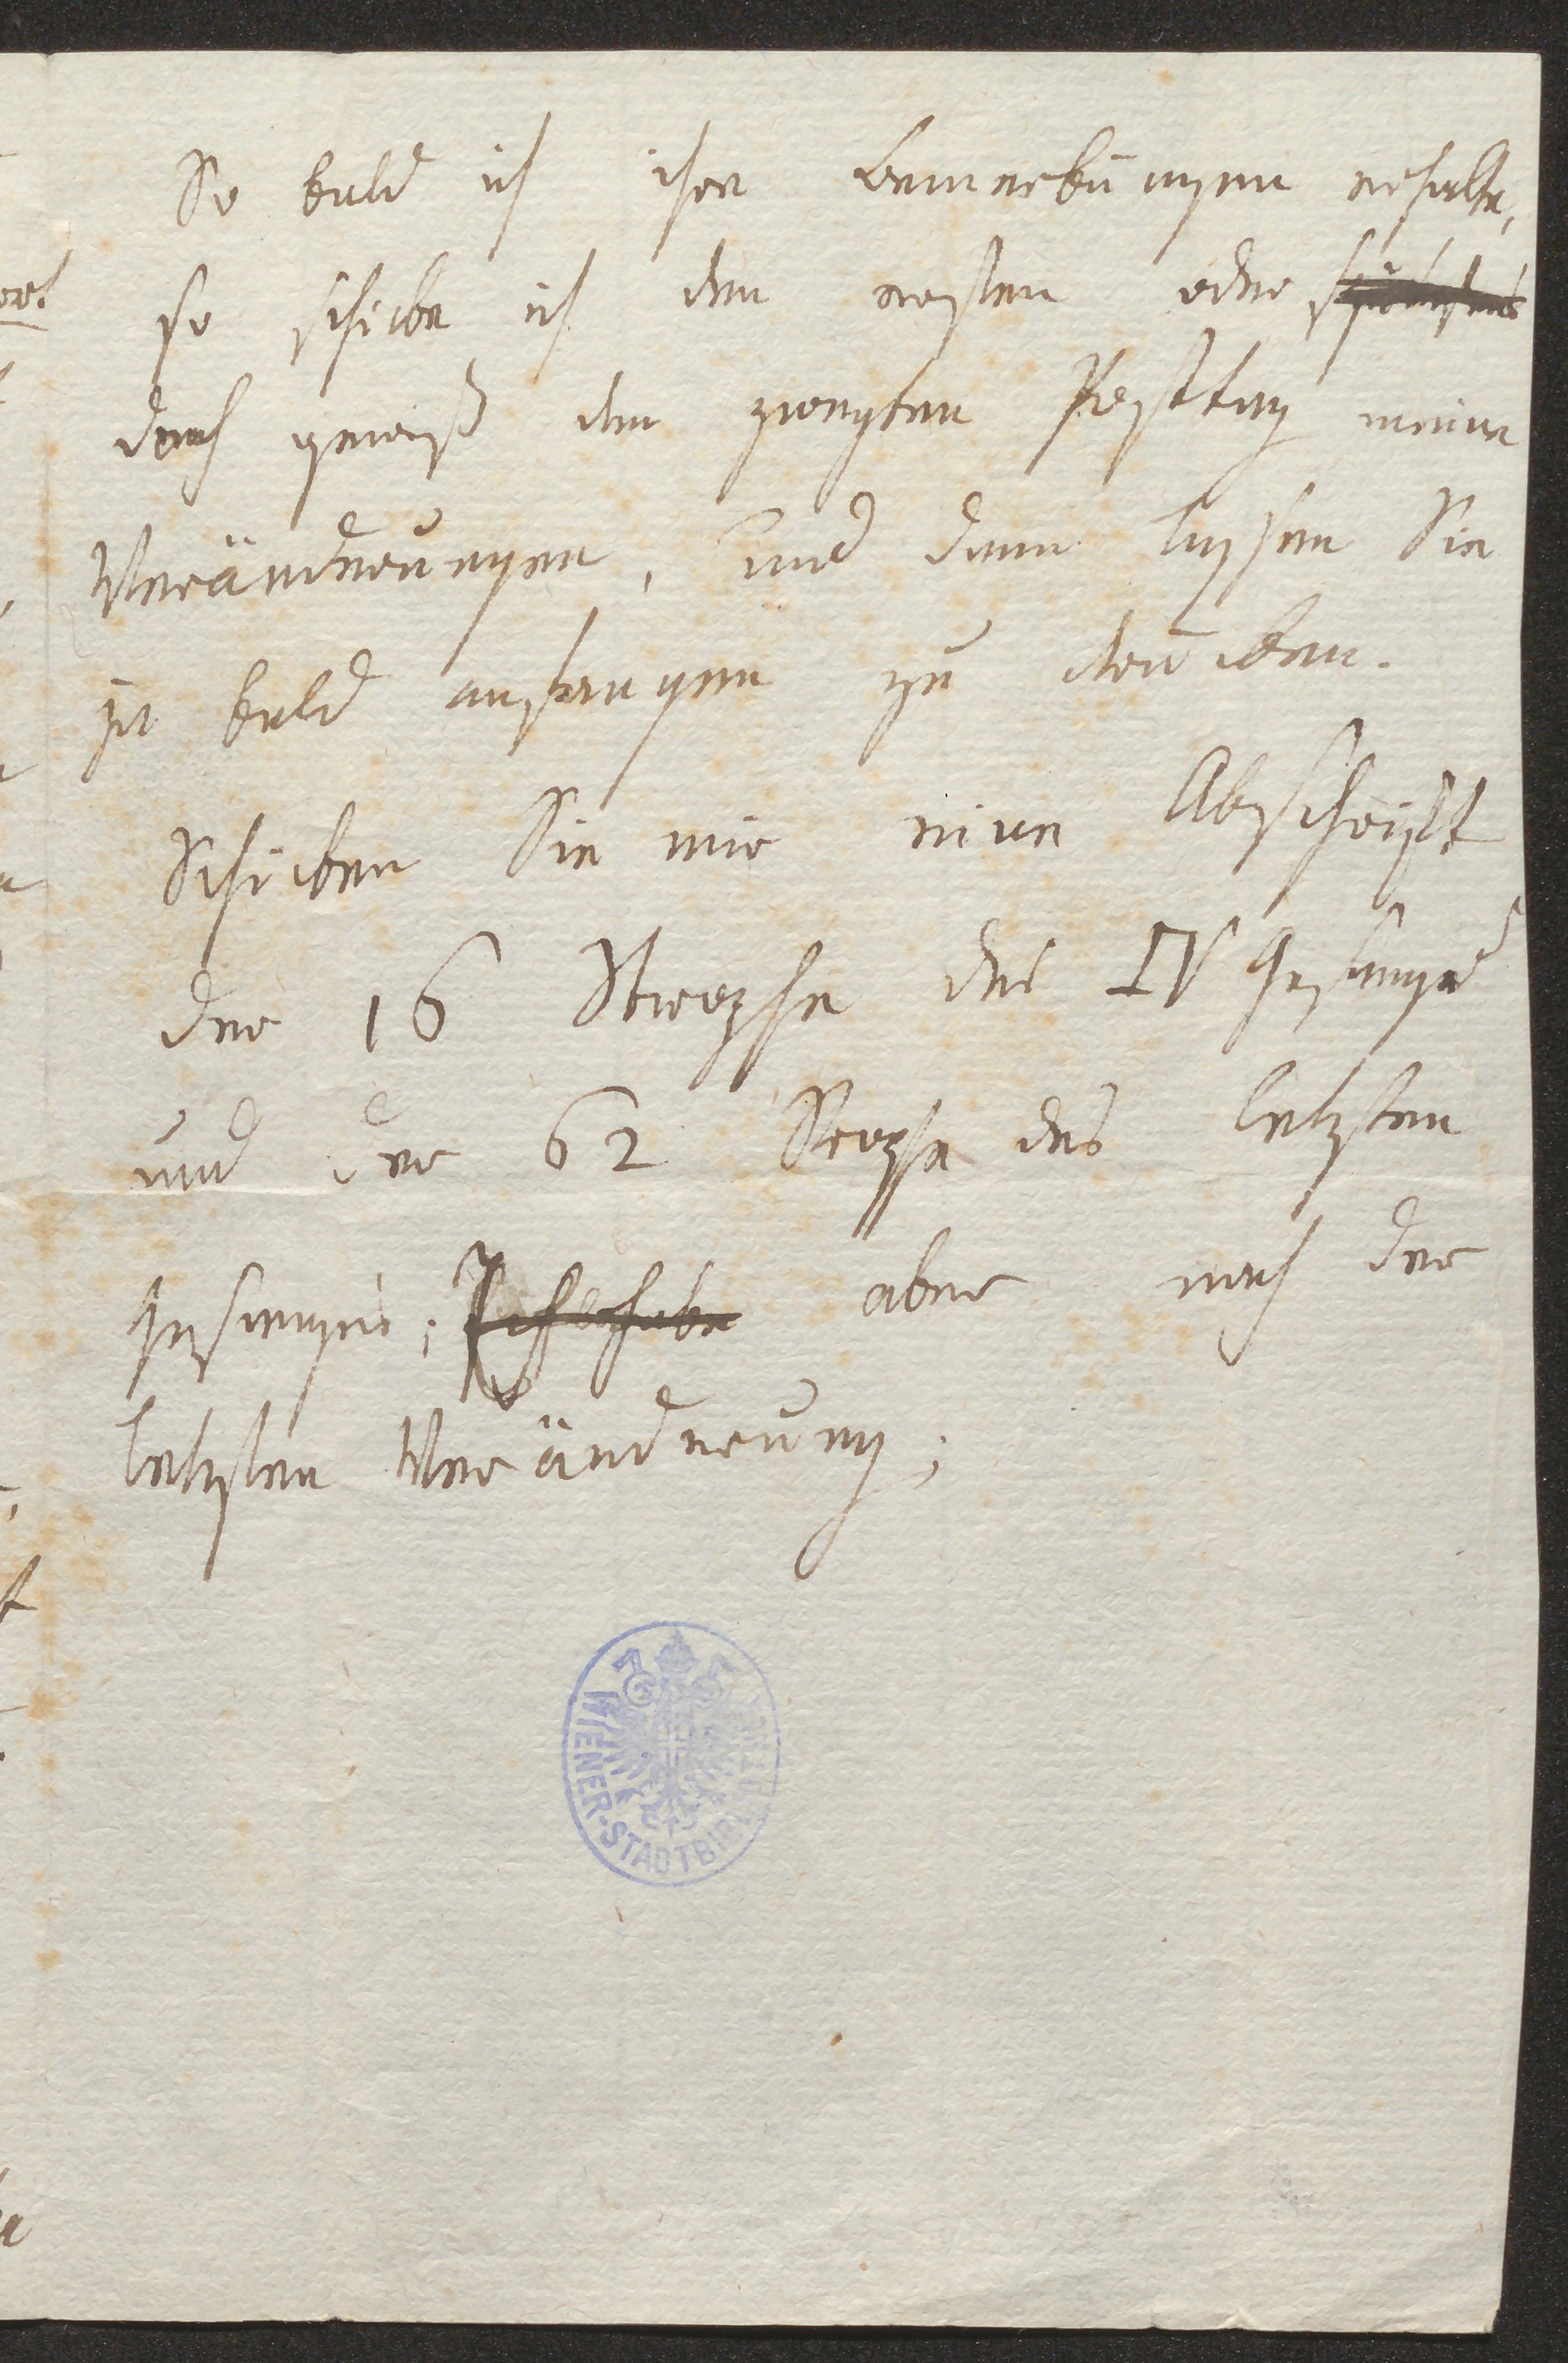 So bald ich ihre Bemerkungen erhalte,
so schicke ich den ersten oder spätestens
doch gewiß den zweyten Posttag meine
Veränderungen, und dann lassen Sie
ja bald anfangen zu drucken.
Schicken Sie mir eine Abschrift
der 16 Strophe des IV Gesanges
und der 62 Strophe des letzten
Gesanges; Ich habe aber nach der
letzten Veränderung;
WIENER-STADTBIBLIOTHEK